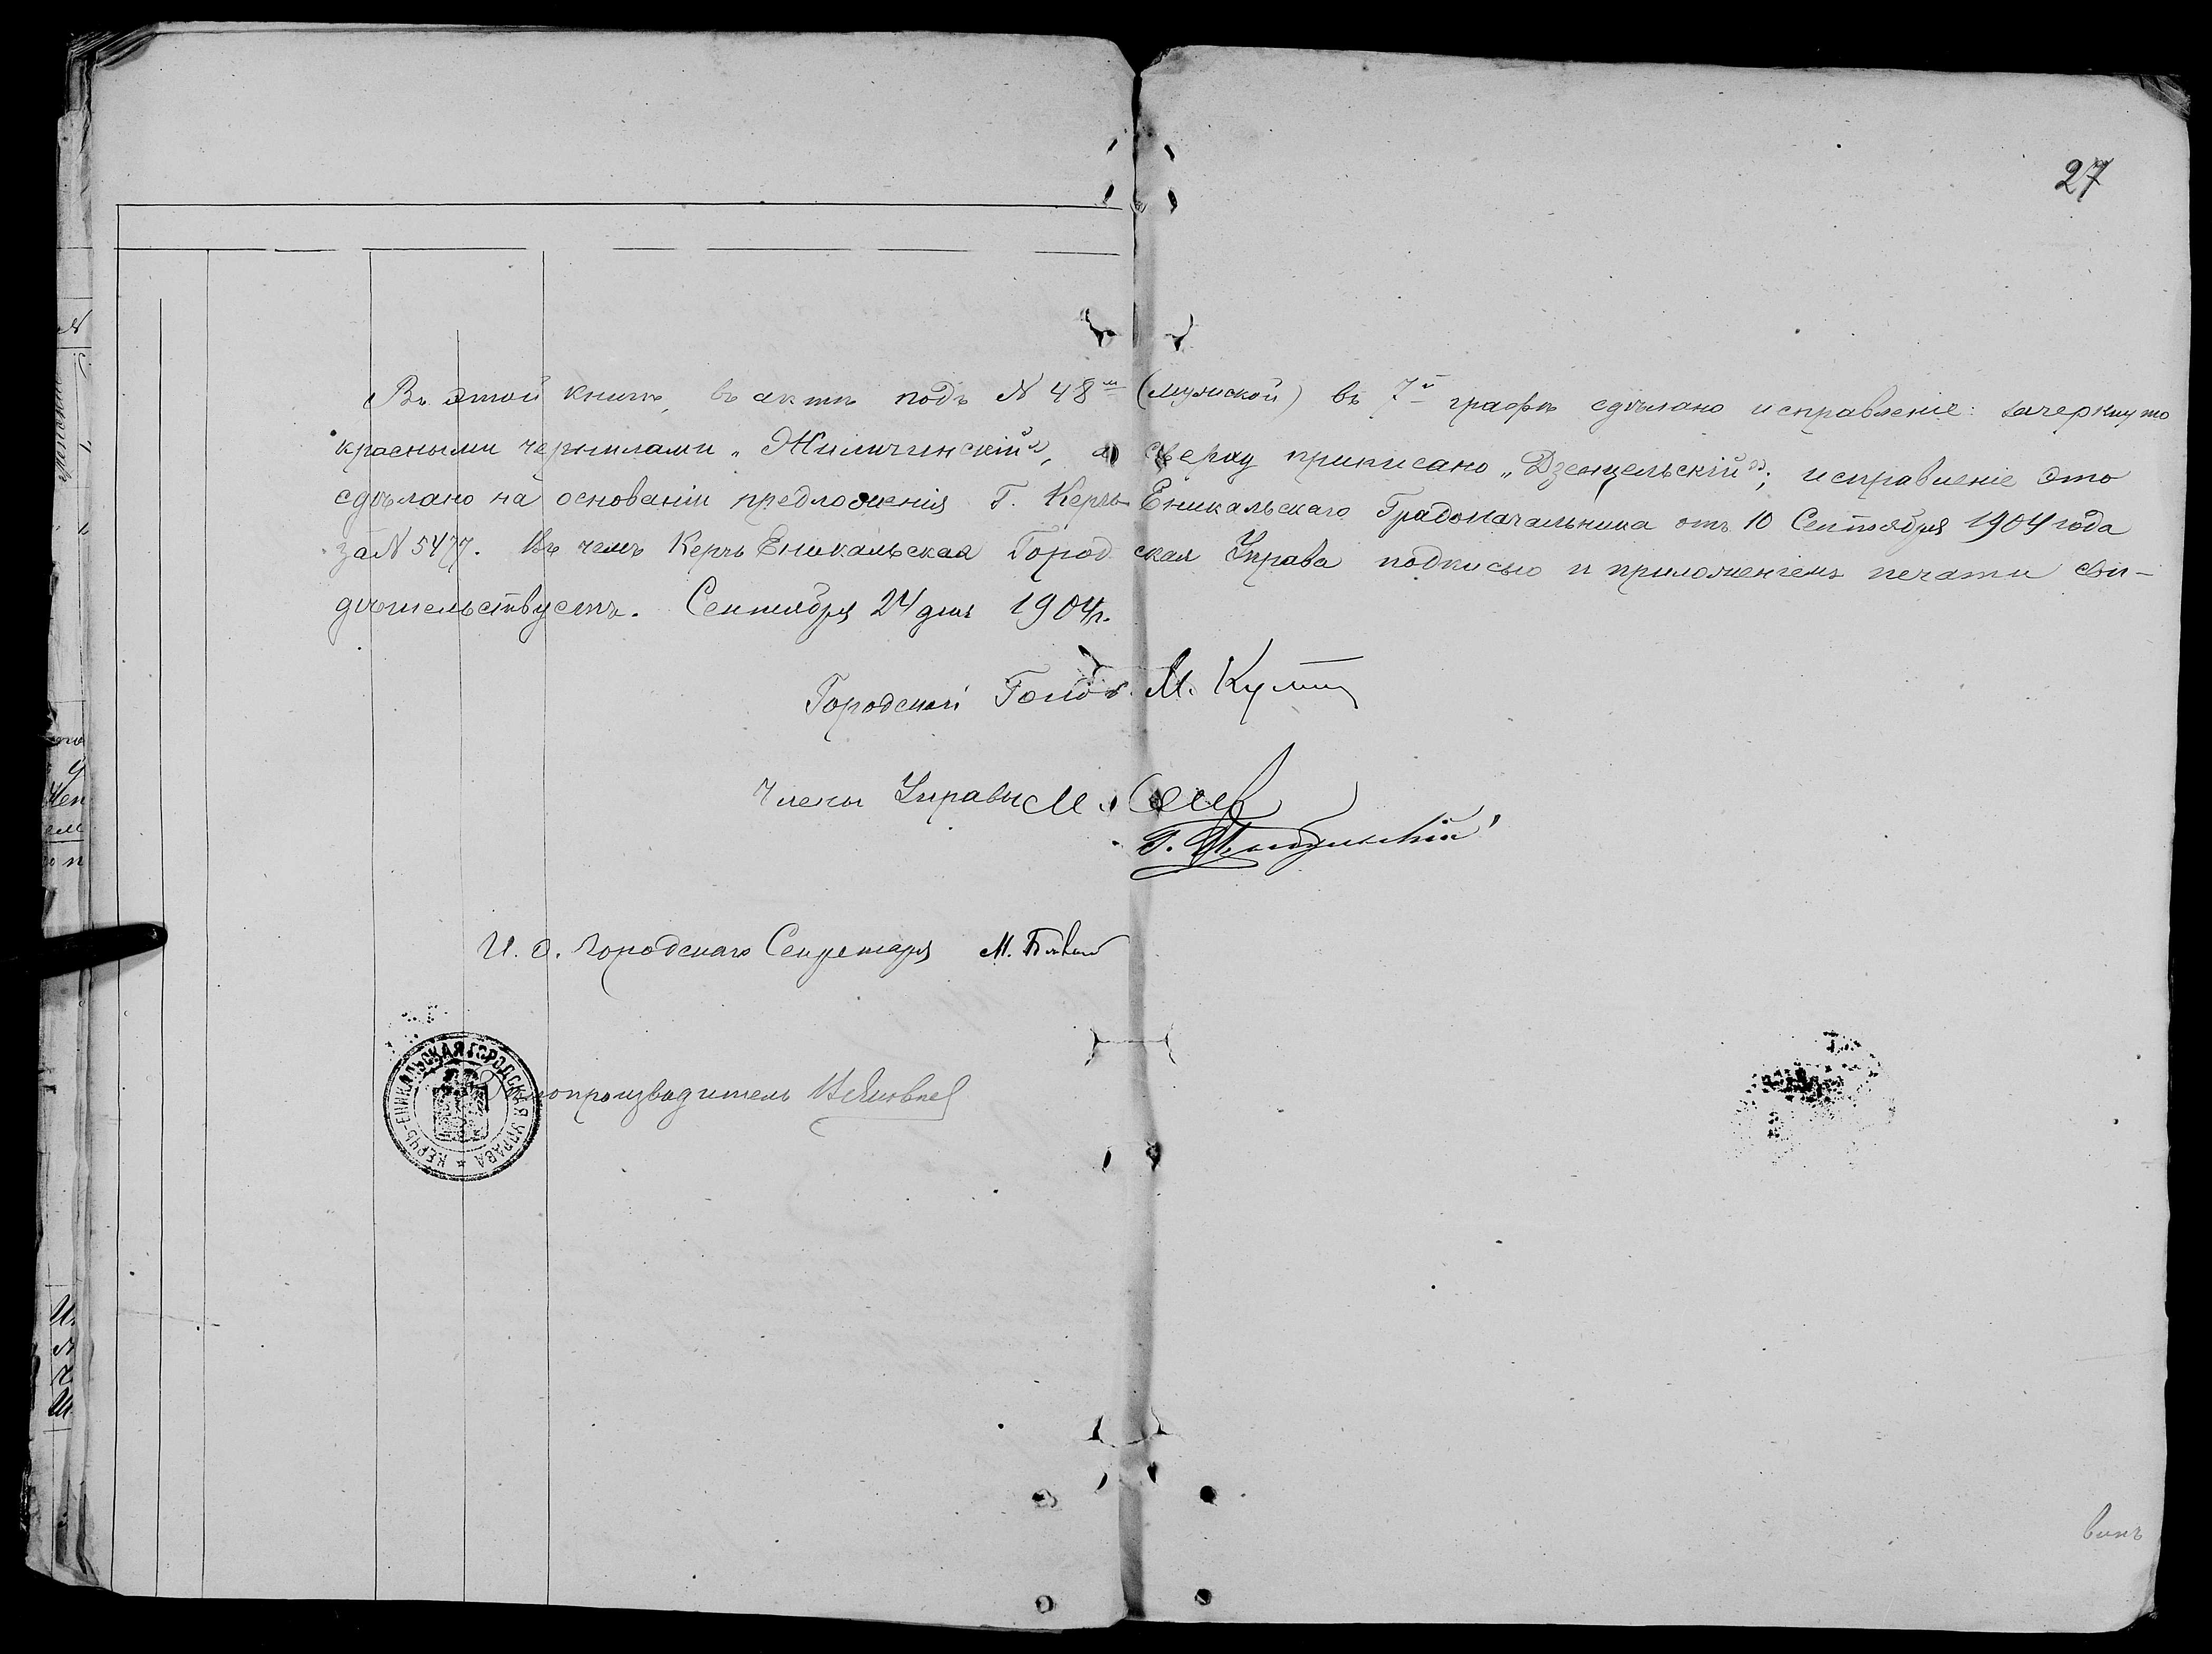 27
Въ этой книгѣ, въ актѣ подъ N 48м (мужской) въ 7й графѣ сдѣлано исправленіе: зачеркнуто
красными чернилами „Жиличинскій“, а сверху приписано „Дзенцельскій“; исправленіе это
сдѣлано на основаніи предложенія Г. Керчь-Еникальскаго Градоначальника отъ 10 Сентября 1904 года
за N 5477. Въ чемъ Керчь Еникальская Городская Управа подписью и приложеніемъ печати сви-
дѣтельствуетъ. Сентября 24 дня 1904 г.
Городской Голова М.
Члены Управы М.
Г.
И. д. Городскаго Секретаря М.
Дѣлопроизводитель
КЕРЧЬ-ЕНИКАЛЬСКАЯ ГОРОДСКАЯ УПРАВА